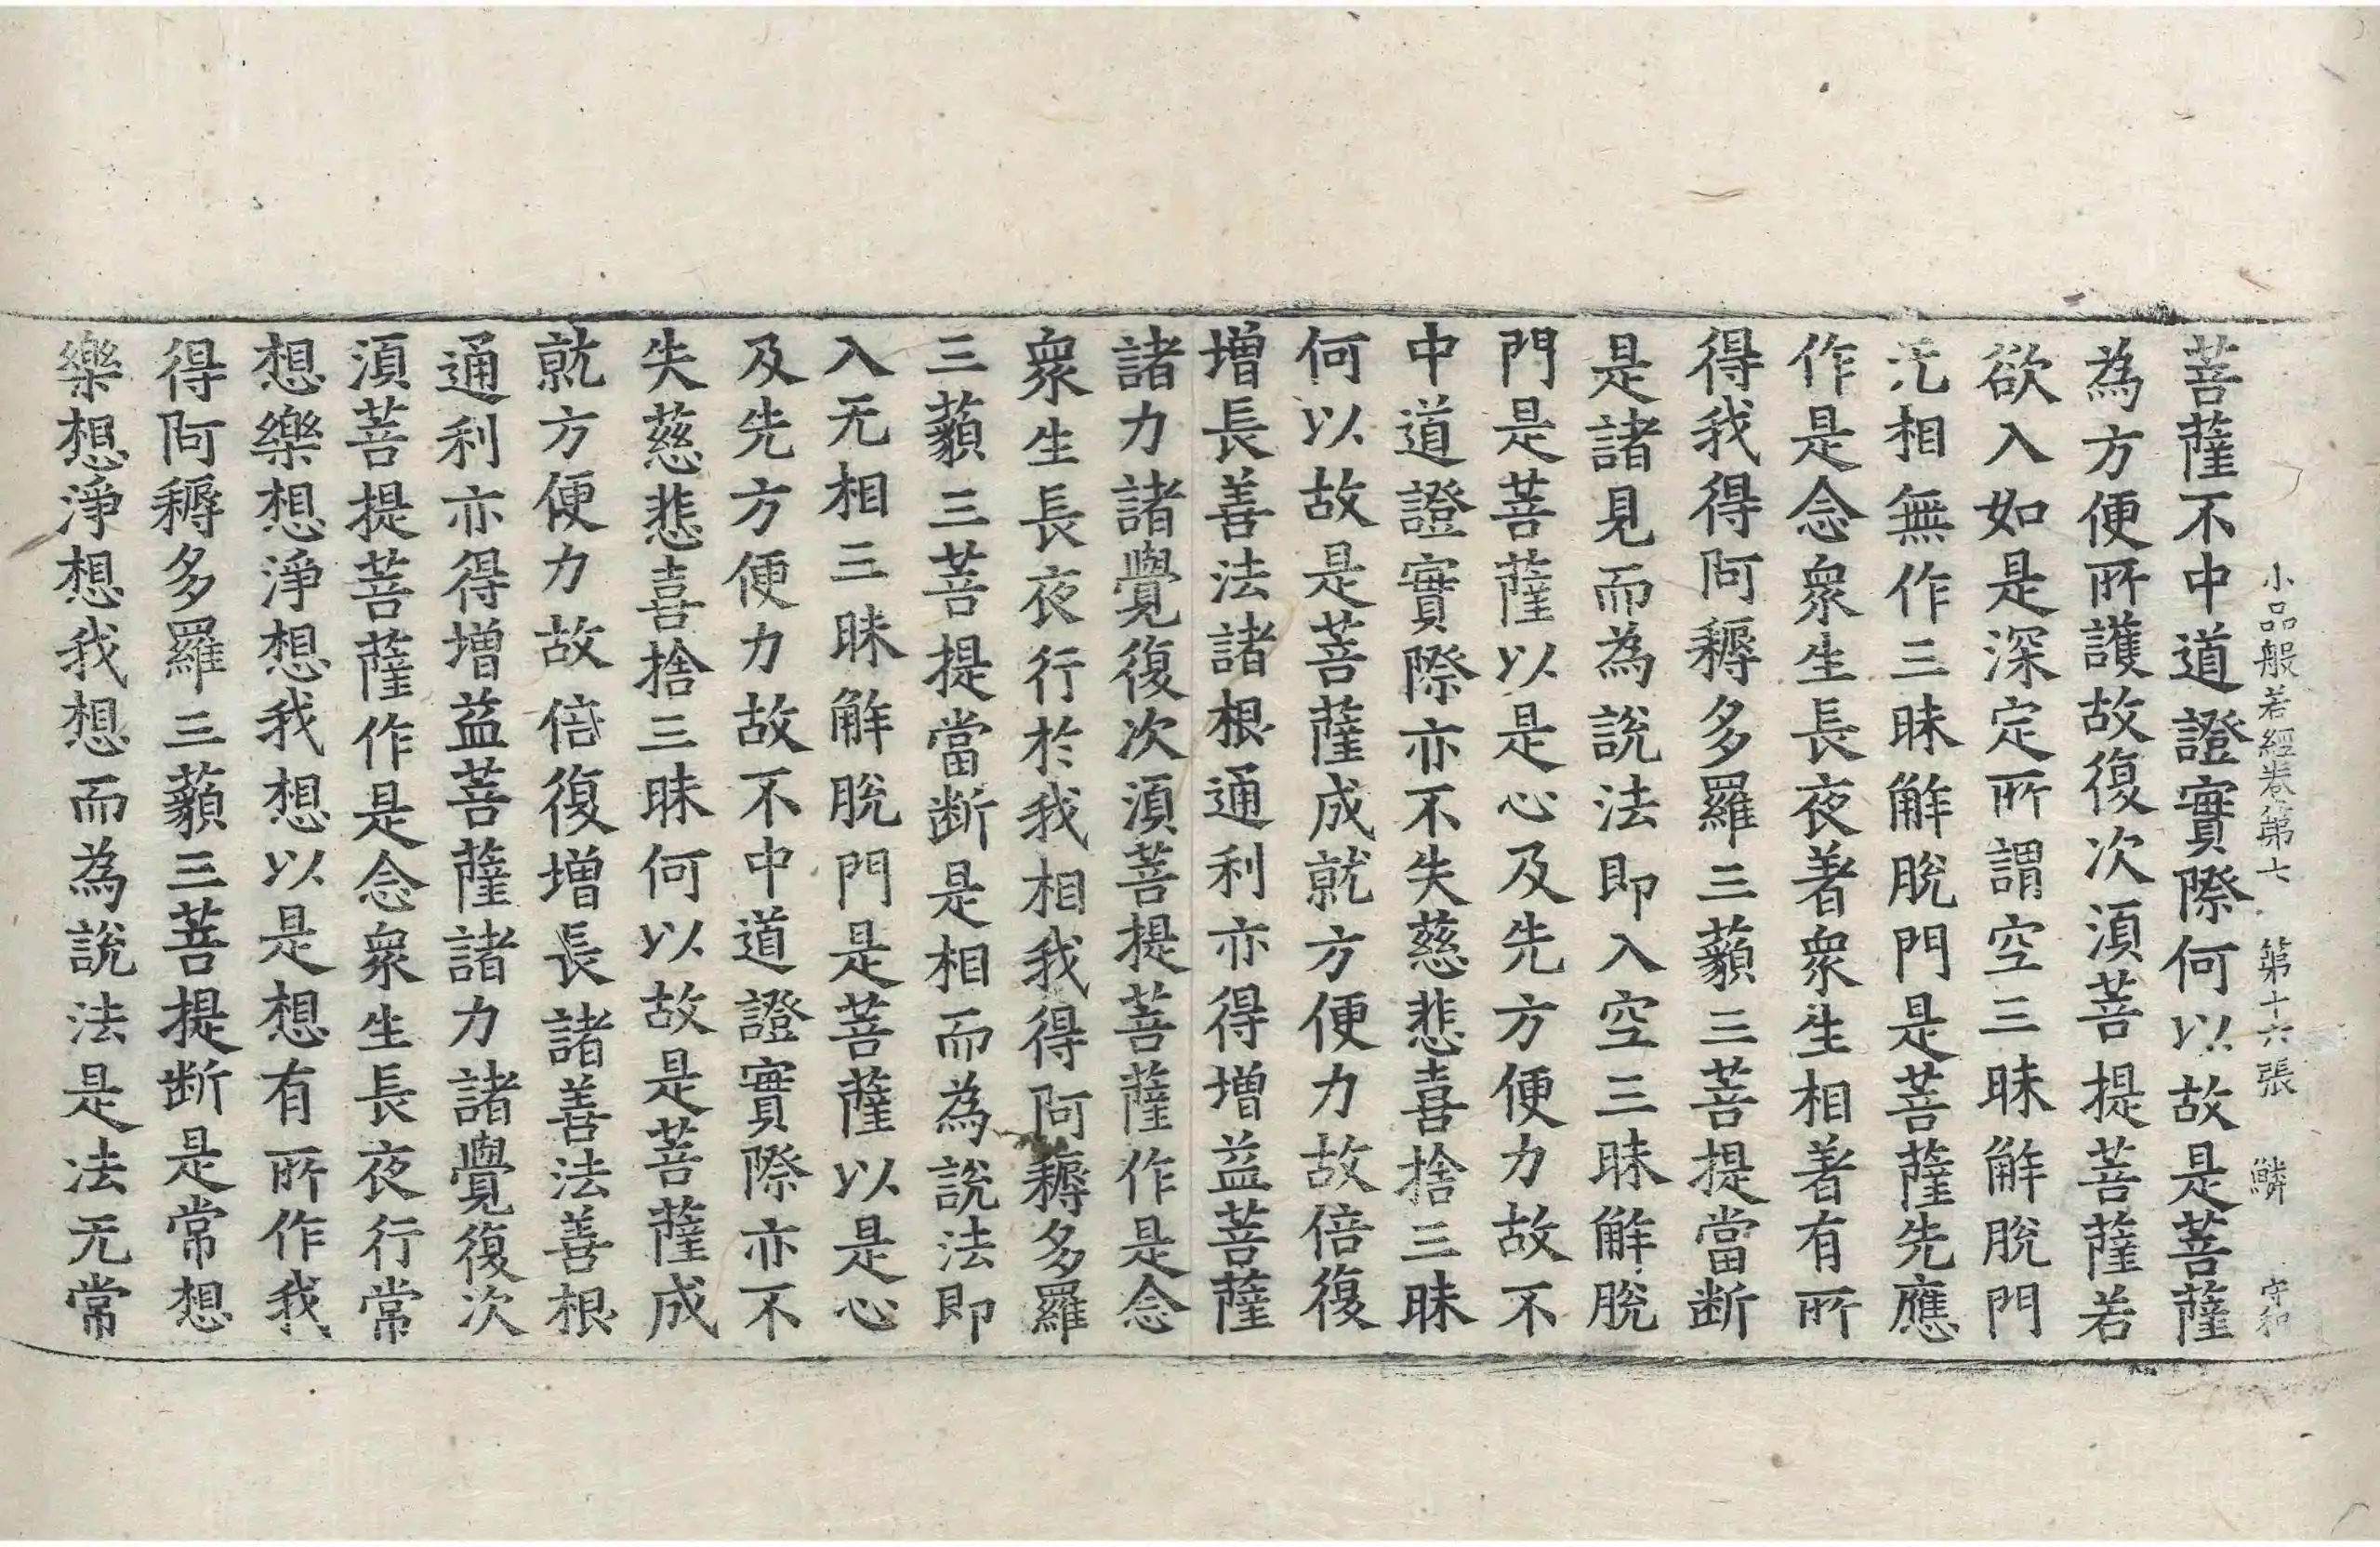 小品般若經卷第七 第十六張 鱗 守和
菩薩不中道證實際何以故是菩薩
為方便所護故復次湏菩提菩薩若
欲入如是深定所謂空三昧解脫門
无相無作三昧解脫門是菩薩先應
作是念衆生長夜著衆生相著有所
得我得阿耨多羅三藐三菩提當断
是諸見而為說法即入空三昧解脫
門是菩薩以是心及先方便力故不
中道證實際亦不失慈悲喜捨三昧
何以故是菩薩成就方便力故倍復
增長善法諸根通利亦得增益菩薩
諸力諸覺復次湏菩提菩薩作是念
衆生長夜行於我相我得阿耨多羅
三藐三菩提當断是相而為說法即
入无相三昧解脫門是菩薩以是心
及先方便力故不中道證實際亦不
失慈悲喜捨三昧何以故是菩薩成
就方便力故倍復增長諸善法善根
通利亦得增益菩薩諸力諸覺復次
湏菩提菩薩作是念衆生長夜行常
想樂想淨想我想以是想有所作我
得阿耨多羅三藐三菩提断是常想
樂想淨想我想而為說法是法无常